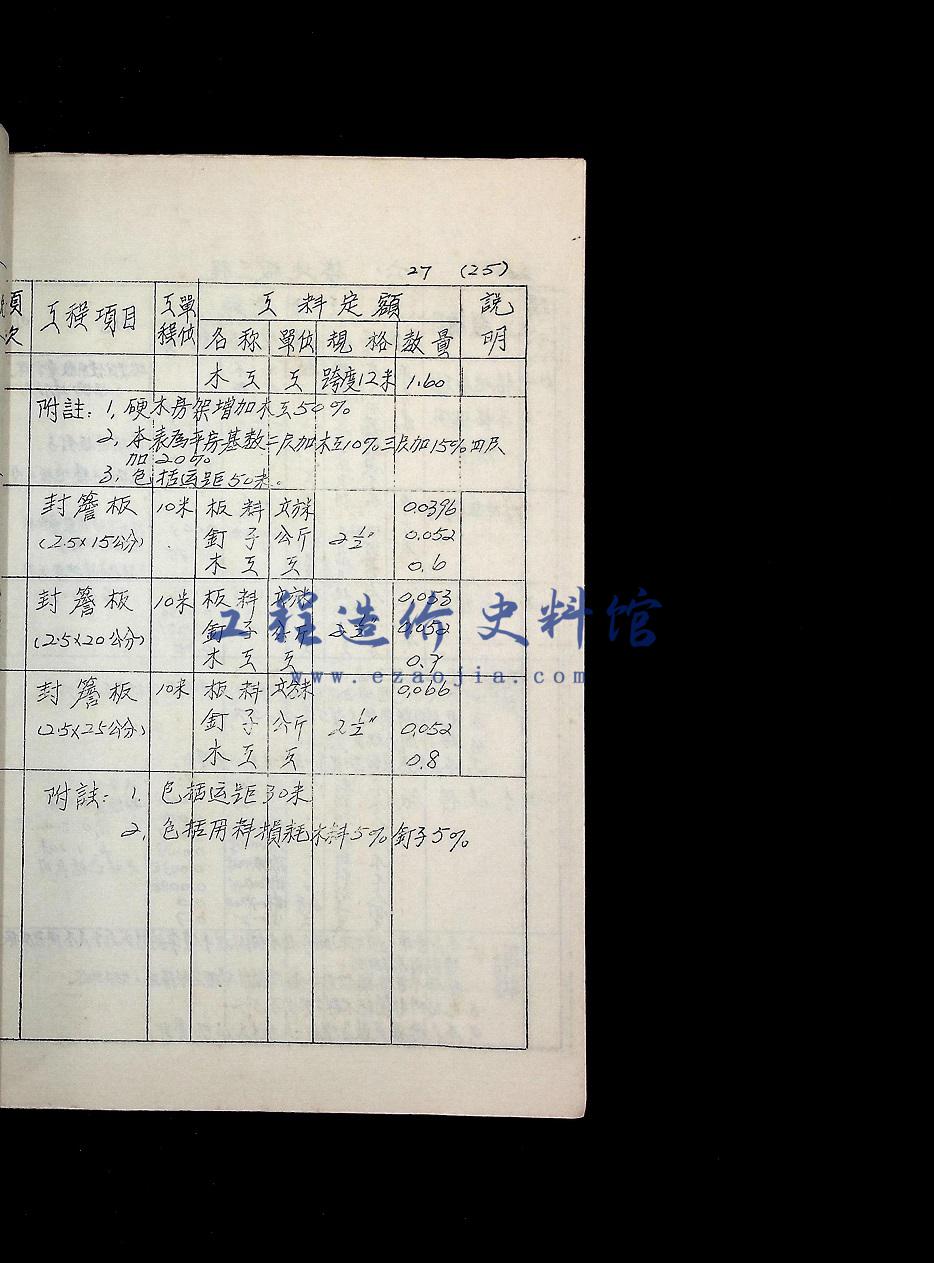 27 (25)
項次 工程項目 工程單位 工料定額 説明
名称 單位 規格 数量
木工 工 跨度12米 1.60
附註：1, 硬木房架增加木工50%
2, 本表為平房基数二层加木工10%三层加15%四层
加20%
3, 包括运距50米。
封簷板 10米 板料 立方米 0.0396
(2.5×15公分) 釘子 公斤 2½" 0.052
木工 工 0.6
封簷板 10米 板料 立方米 0.053
(2.5×20公分) 釘子 公斤 2½" 0.052
木工 工 0.7
工程造价史料馆
www.ezaojia.com
封簷板 10米 板料 立方米 0.066
(2.5×25公分) 釘子 公斤 2½" 0.052
木工 工 0.8
附註：1. 包括运距30米
2, 包括用料損耗木料5%釘子5%